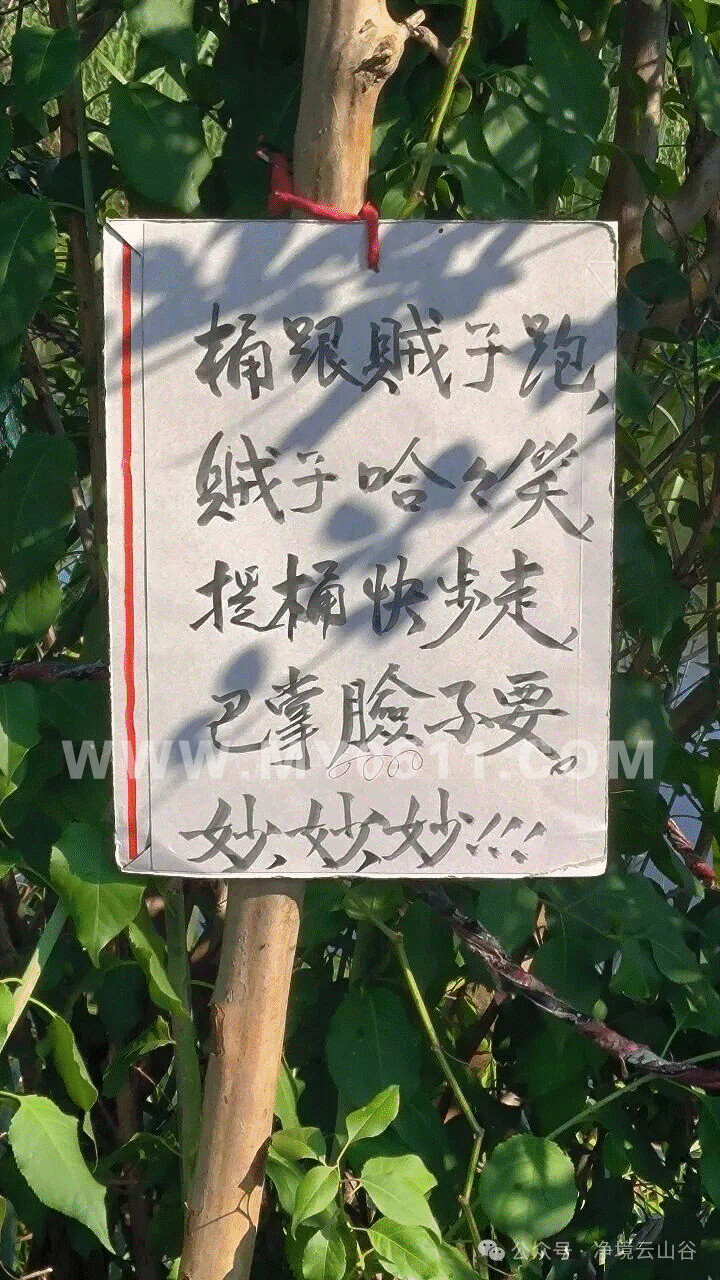 桶跟贼子跑,
贼子哈々笑,
提桶快步走,
巴掌臉子要。
WWW.MY0511.COM
妙,妙,妙!!!
公众号·净境云山谷